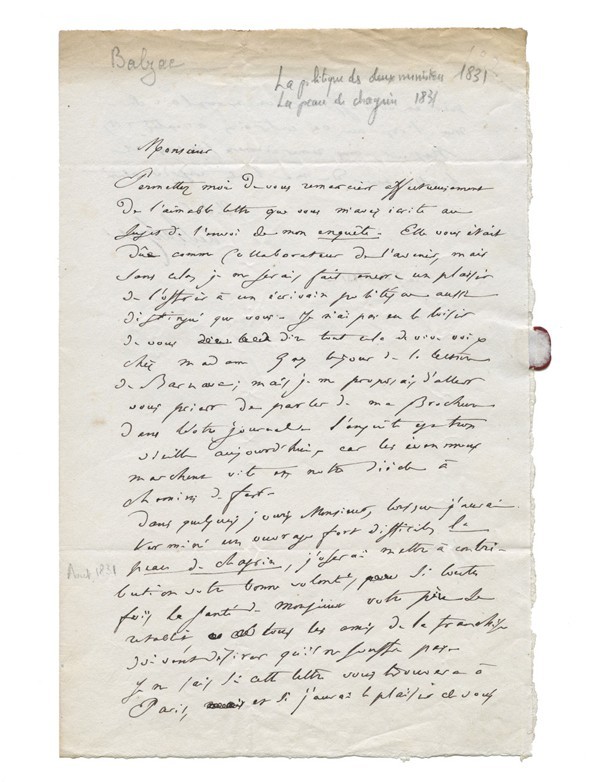 Balzac
La politique des deux ministères 1831
La peau de chagrin 1831
Monsieur
Permettez moi de vous remercier affectueusement
de l'aimable lettre que vous m'avez écrite au
sujet de l'envoi de mon enquête. Elle vous était
dûe comme Collaborateur de l'avenir, mais
sans cela, je me serais fait encore un plaisir
de l'offrir à un écrivain politique aussi
distingué que vous. Je n'ai pas eu le loisir
de vous dire tout cela de vive voix
chez madame Gay le jour de la lecture
de Barnave; mais je me proposais d'aller
vous prier de parler de ma Brochure
dans votre journal. l'enquête est trop
vieille aujourdhui, car les évènemens
marchent vite en notre siècle à
chemins de fer.
Dans quelques jours, Monsieur, lorsque j'aurai
terminé un ouvrage fort difficile, la
peau de chagrin, j'oserai mettre à contri-
Avril 1831
bution votre bonne volonté, si toute
fois la santé de monsieur votre père se
rétablit tous les amis de la franchise
doivent désirer qu'il ne souffre pas.
Je ne sais si cette lettre vous trouvera à
Paris, et si j'aurai le plaisir de vous